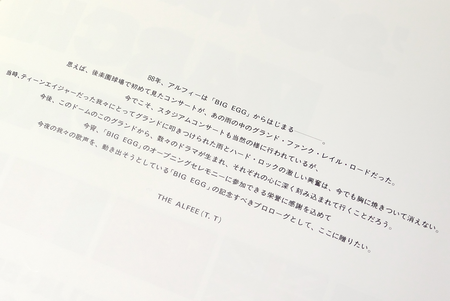 88年、アルフィーは「BIG EGG」からはじまる————。
思えば、後楽園球場で初めて見たコンサートが、あの雨の中のグランド・ファンク・レイル・ロードだった。
今でこそ、スタジアムコンサートも当然の様に行われているが、
当時、ティーンエイジャーだった我々にとってグランドに叩きつけられた雨とハード・ロックの激しい興奮は、今でも胸に焼きついて消えない。
今後、このドームのこのグランドから、数々のドラマが生まれ、それぞれの心に深く刻み込まれて行くことだろう。
今宵、「BIG EGG」のオープニングセレモニーに参加できる栄誉に感謝を込めて
今夜の我々の歌声を、動き出そうとしている「BIG EGG」の記念すべきプロローグとして、ここに贈りたい。
THE ALFEE(T. T)